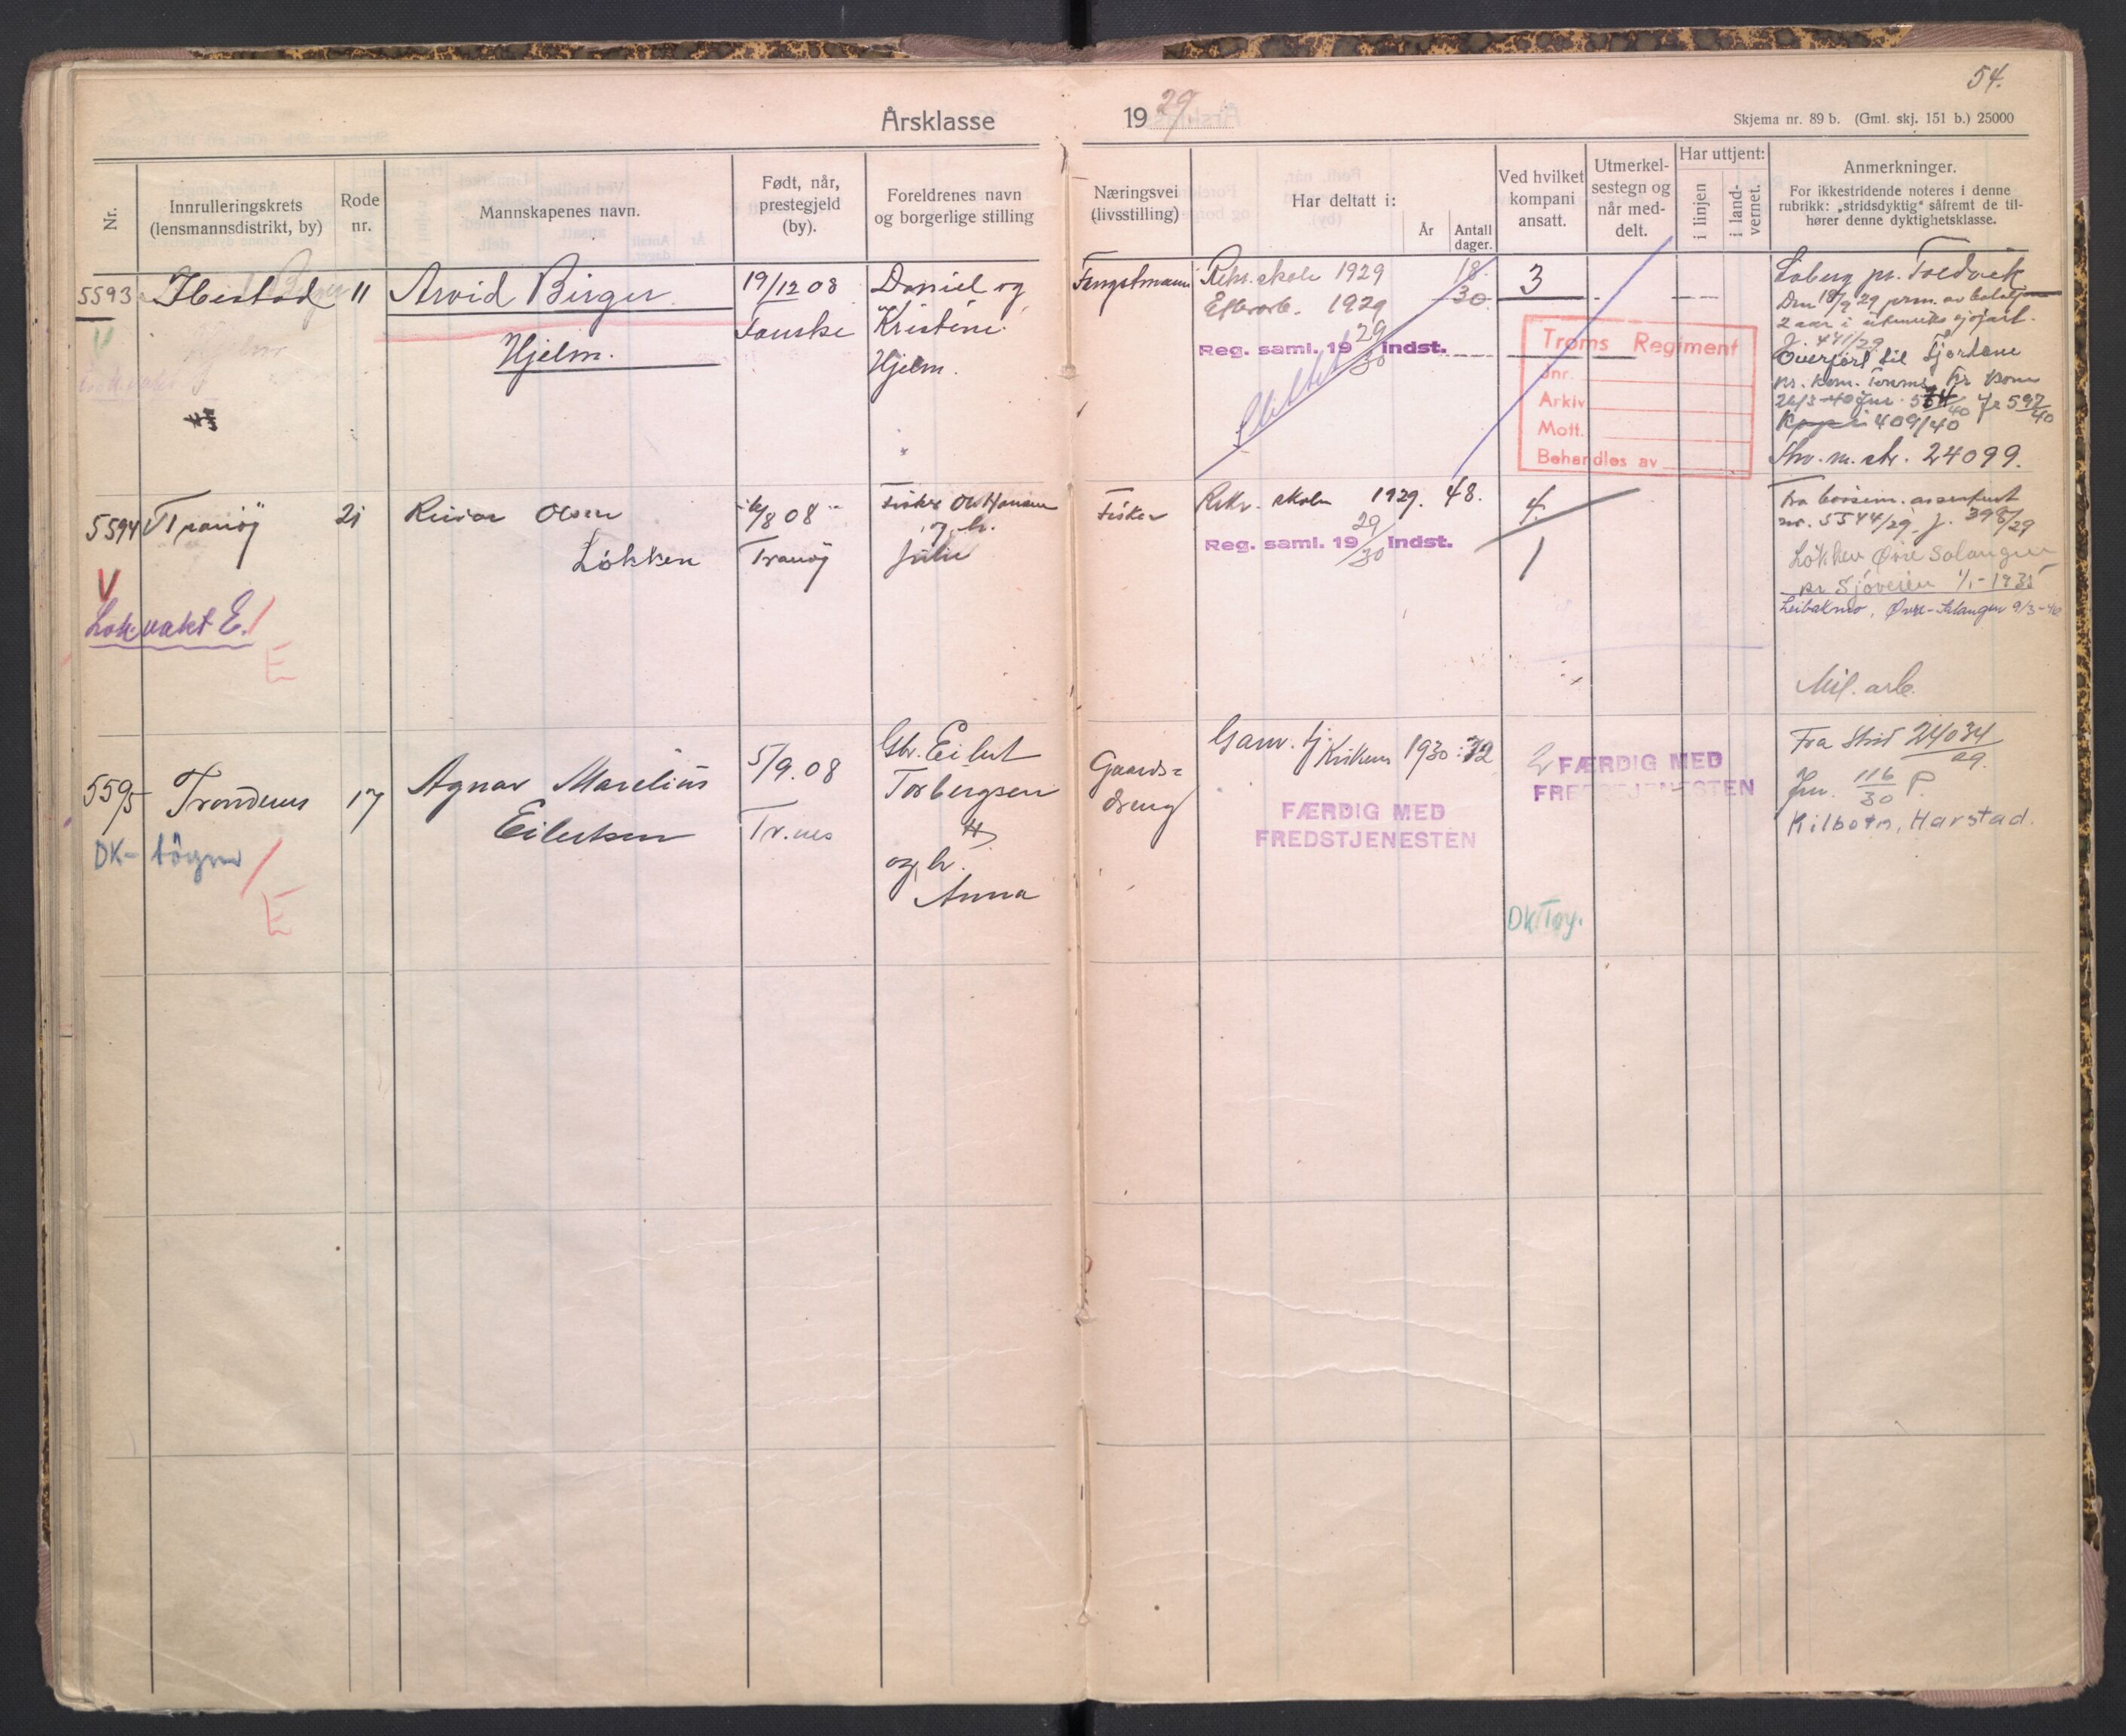 54.
Årsklasse 1929
Skjema nr. 89 b. (Gml. skj. 151 b.) 25000
Nr.
Innrulleringskrets
(lensmannsdistrikt, by)
Rode
nr.
Mannskapenes navn.
Født, når,
prestegjeld
(by).
Foreldrenes navn
og borgerlige stilling
Næringsvei
(livsstilling)
Har deltatt i:
År
Antall
dager.
Ved hvilket
kompani
ansatt.
Utmerkel-
sestegn og
når med-
delt.
Har uttjent:
i linjen
i land-
vernet.
Anmerkninger.
For ikkestridende noteres i denne
rubrikk: „stridsdyktig“ såfremt de til-
hører denne dyktighetsklasse.
5593
Ibestad
11
Arvid Birger
Hjelm.
19/12 08
Fauske
Daniel og
Kristine
Hjelm.
Fangstmann
Rekr. skole 1929 18.
1929 30
Reg. saml. 19 29/30 indst.
Slettet
3
Troms Regiment
Jnr.
Arkiv
Mott.
Behandles av
Loberg pr. Foldvik
2 aar i utenriks sjøfart.
J. 441/29
Overført til Fjordane
409/40
24099.
5594
Tranöy
21
Reidar Olsen
Løkken
/8 08
Tranöy
Fisker Ole Hansen
og h.
Julie
Fisker
Rekr. skolen 1929. 48.
Reg. saml. 19 29/30 indst.
4.
1
nr. 5544/29, J. 398/29
Løkken Øvre Salangen
pr Sjøveien 1/1-1935
Øvre-Salangen 9/3-40
Mil. arb.
V
Lok.vakt E.
E
5595
Trondenes
17
Agnar Marelius
Eilertsen
5/9.08
Tr.nes
Gbr. Eilert
Torbergsen
og h.
Anna
Gaards=
dreng
Garn. tj. Kirkenes 1930: 72
FÆRDIG MED
FREDSTJENESTEN
2
FÆRDIG MED
FREDSTJENESTEN
Fra 24034/29.
Jnr. 116/30 P.
Kilbotn, Harstad.
DK-
E
DK Tøy.